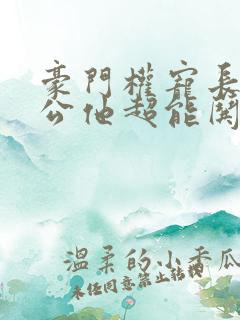 豪門權寵長
公他超能闖
溫柔的小香瓜
未經同意禁止轉載